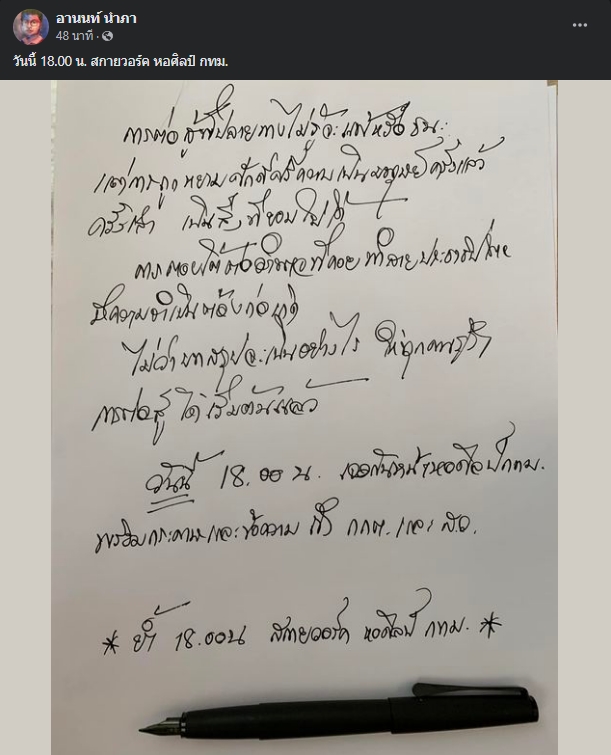 อานนท์ นำภา
48 นาที ·
วันนี้ 18.00 น. สกายวอร์ค หอศิลป์ กทม.
การต่อสู้ที่ปลายทางไม่รู้จะแพ้หรือชนะ
แต่การถูกหยามศักดิ์ศรีความเป็นมนุษย์ครั้งแล้ว
ครั้งเล่า เป็นสิ่งที่ยอมไม่ได้
การตอบโต้ต่ออำนาจที่คอยทำลายประชาธิปไตย
มีความจำเป็นต้องก่อเกิด
ไม่ว่าบทสรุปจะเป็นอย่างไร ให้ทุกคนรู้ว่า
การต่อสู้ ได้เริ่มต้นแล้ว
วันนี้ 18.00 น. เจอกันหน้าหอศิลป์ กทม.
พร้อมกระดาษและข้อความ ถึง กกต. และ ส.ว.
* ย้ำ 18.00น สกายวอร์ค หอศิลป์ กทม. *